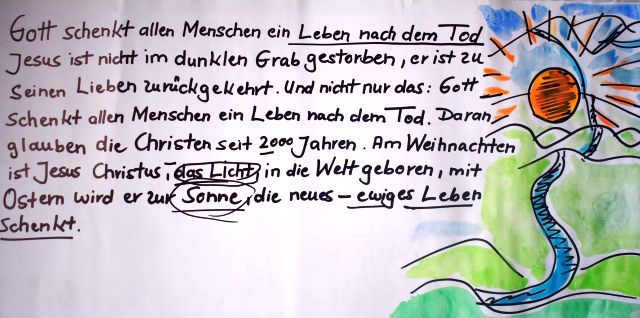 Gott schenkt allen Menschen ein Leben nach dem Tod
Jesus ist nicht im dunklen Grab gestorben, er ist zu
seinen Lieben zurückgekehrt. Und nicht nur das: Gott
schenkt allen Menschen ein Leben nach dem Tod. Daran
glauben die Christen seit 2000 Jahren. Am Weihnachten
ist Jesus Christus, das Licht, in die Welt geboren, mit
Ostern wird er zur Sonne, die neues - ewiges Leben
schenkt.